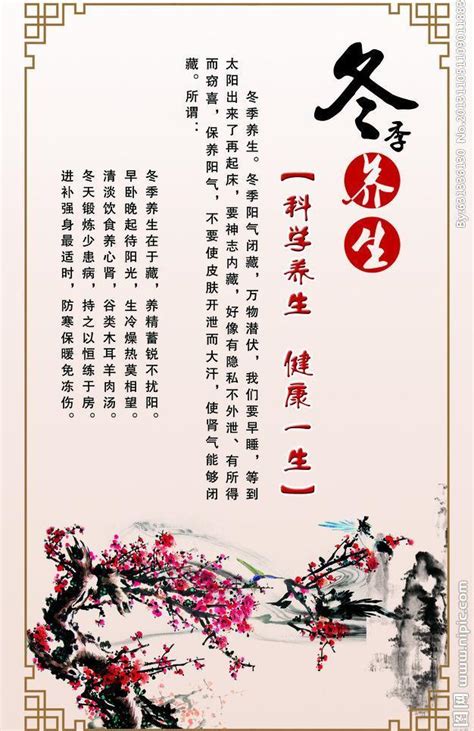 冬季养生
【科学养生 健康一生】
冬季养生。冬季阳气闭藏，万物潜伏，我们要早睡，等到
太阳出来了再起床，要神志内藏，好像有隐私不外泄、有所得
而窃喜，保养阳气，不要使皮肤开泄而大汗，使肾气能够闭
藏。所谓：
冬季养生在于藏，养精蓄锐不扰阳。
早卧晚起待阳光，生冷燥热莫相望。
清淡饮食养心肾，谷类木耳羊肉汤。
冬天锻炼少患病，持之以恒练于房。
进补强身最适时，防寒保暖免冻伤。
图网 www.nipic.com